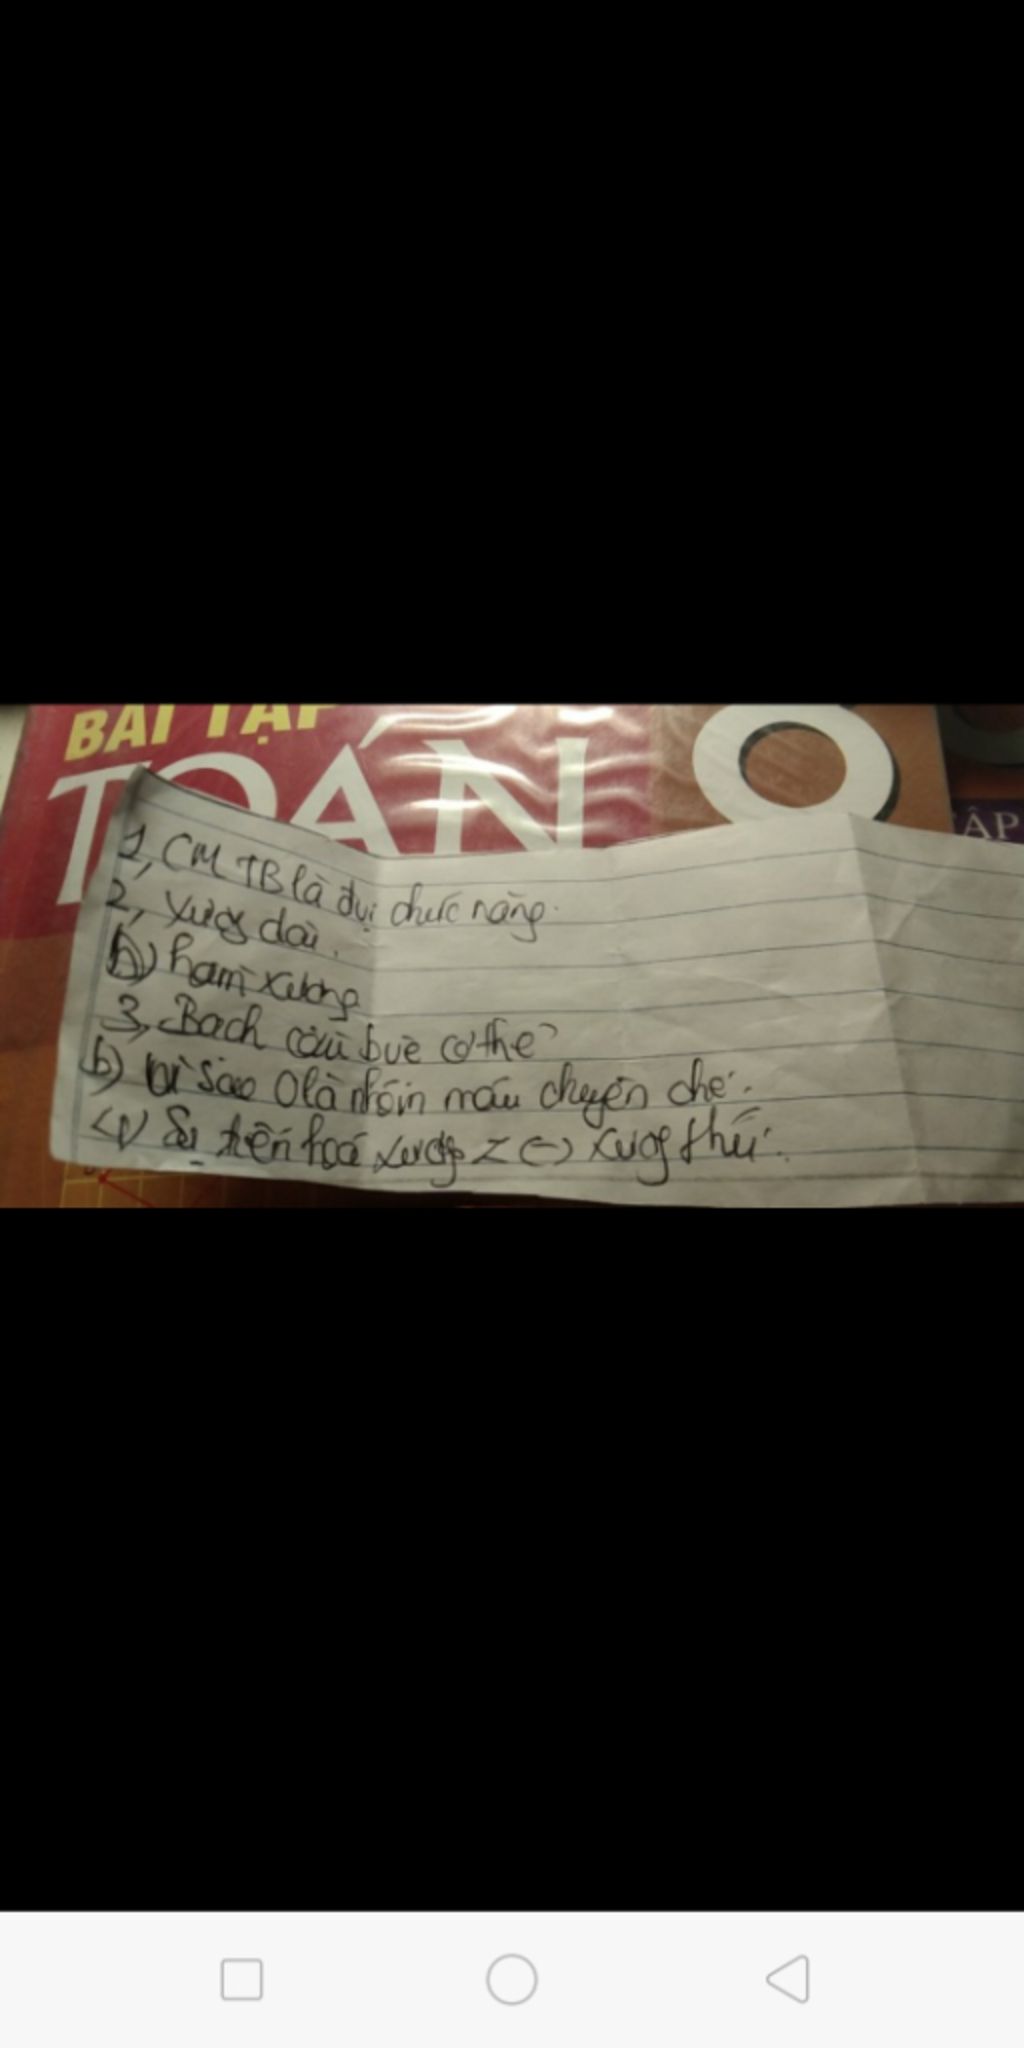 BÀI TẬP
TOÁN 8
ẬP
1, CM TB là đvị chức năng.
2, Xươg dài.
b) hầm xương
3, Bạch cầu bvệ cơ thể
b) vì sao O là nhóm máu chuyên cho.
4) Sự tiến hoá xươg
xươg thú.